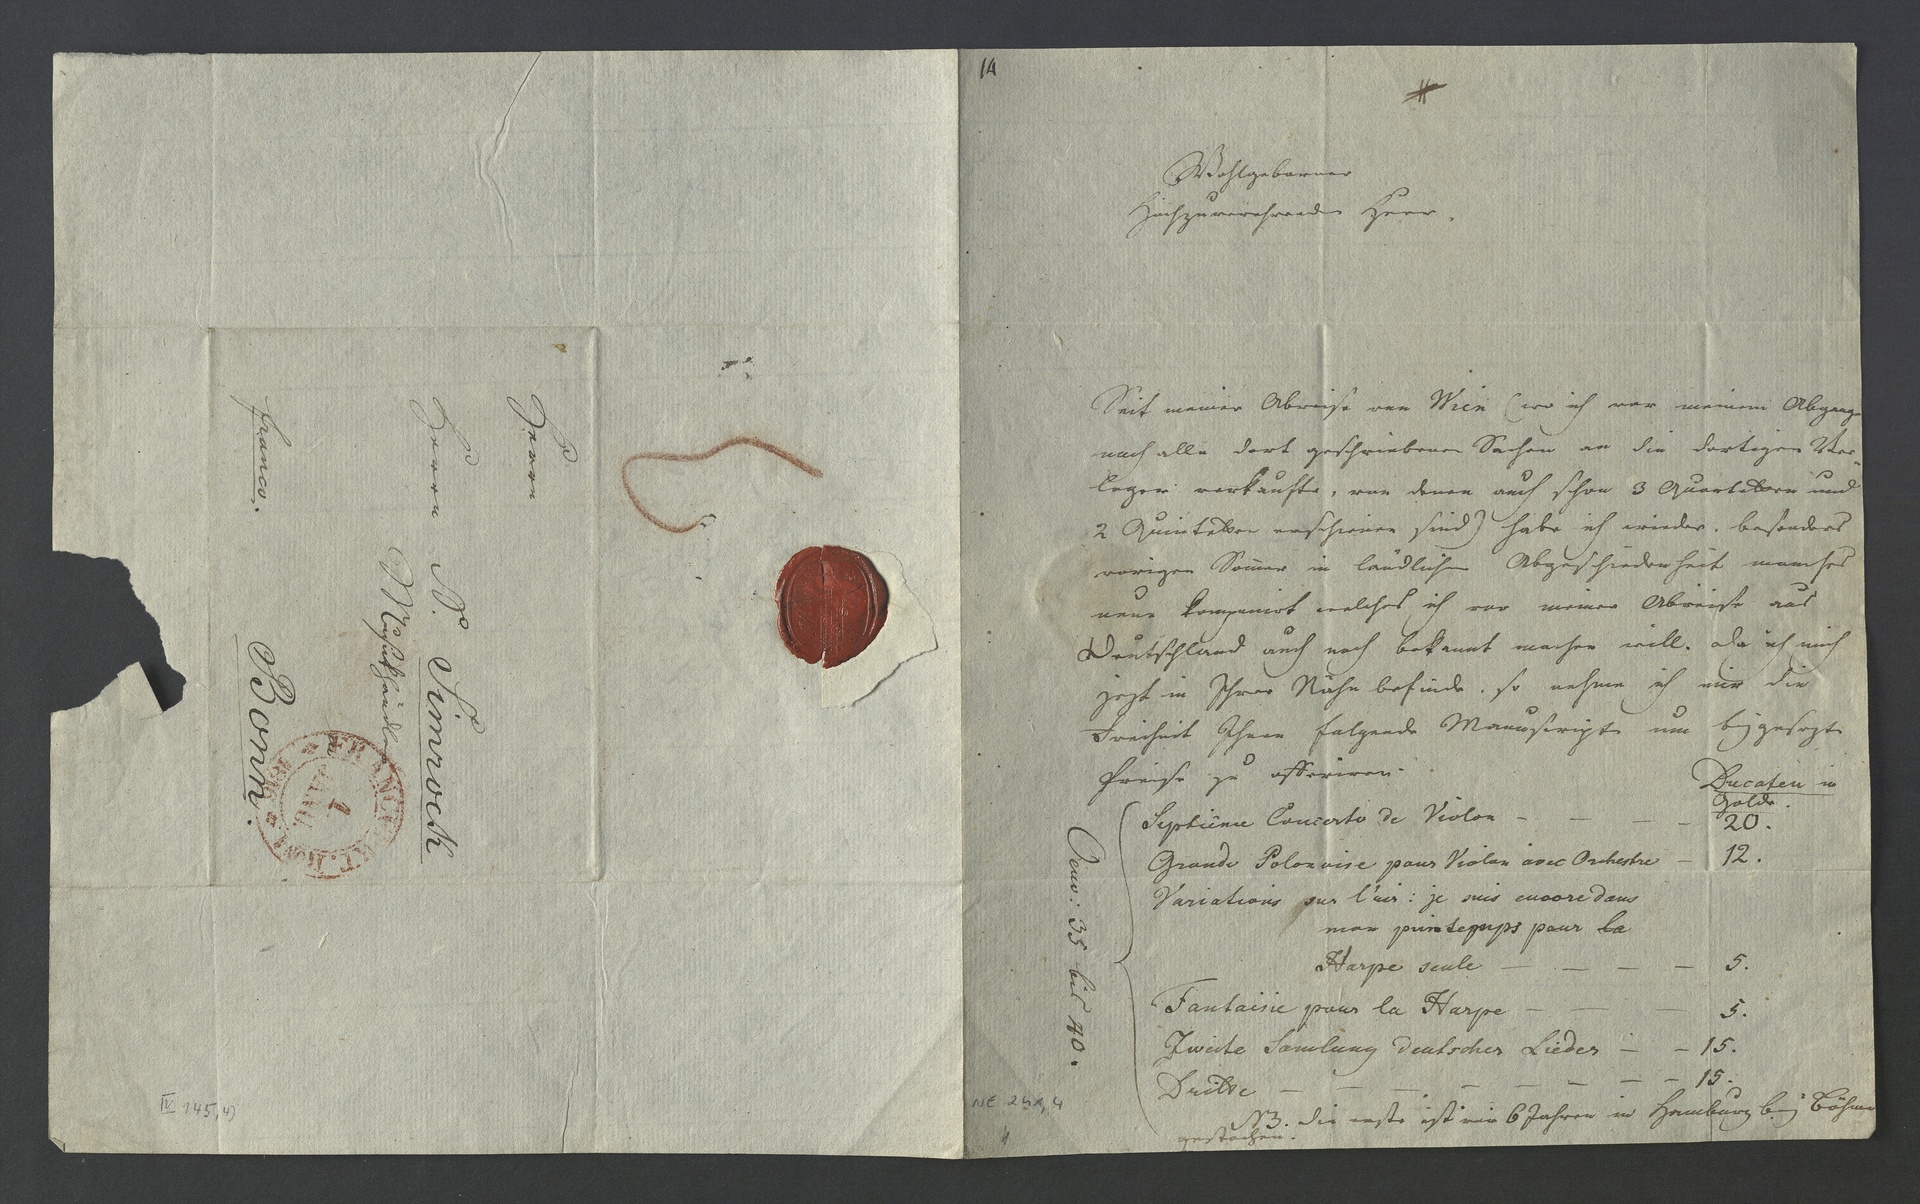 Herrn
Herrn N. Simrock
Musikhändler
in
Bonn.
franco.
FRANCFURT
1
IV 145,4)
14
#
Wohlgeborner
Hochzuverehrender Herr,
Seit meiner Abreise von Wien (wo ich vor meinem Abgang
noch alle dort geschriebenen Sachen an die dortigen Ver-
leger verkaufte, von denen auch schon 3 Quartetten und
2 Quintetten erschienen sind) habe ich wieder, besonders
vorigen Somer in ländlicher Abgeschiedenheit manches
neue komponirt welches ich vor meiner Abreise aus
Deutschland auch noch bekannt machen will. Da ich mich
jezt in Ihrer Nähe befinde, so nehme ich mir die
Freiheit Ihnen folgende Manuscripte um beygesezte
Preise zu offeriren.
Ducaten in
Golde.
Septième Concerto de Violon — — — — 20.
Grande Polonoise pour Violon avec Orchestre — 12.
Variations sur l'air: je suis encore dans
mon printemps pour la
Harpe seule — — — — — 5.
Fantaisie pour la Harpe — — — 5.
Zweite Samlung deutscher Lieder — — 15.
Dritte — — — — — — — — 15.
NB. die erste ist vor 6 Jahren in Hamburg bey Böhme
gestochen.
Oeuv: 35 bis 40.
NE 241,4